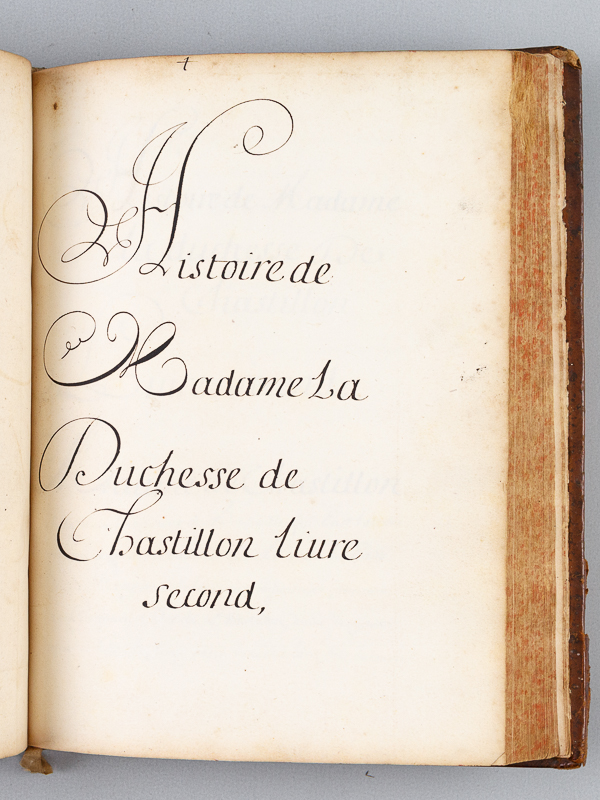 Histoire de
Madame La
Duchesse de
Chastillon liure
second,